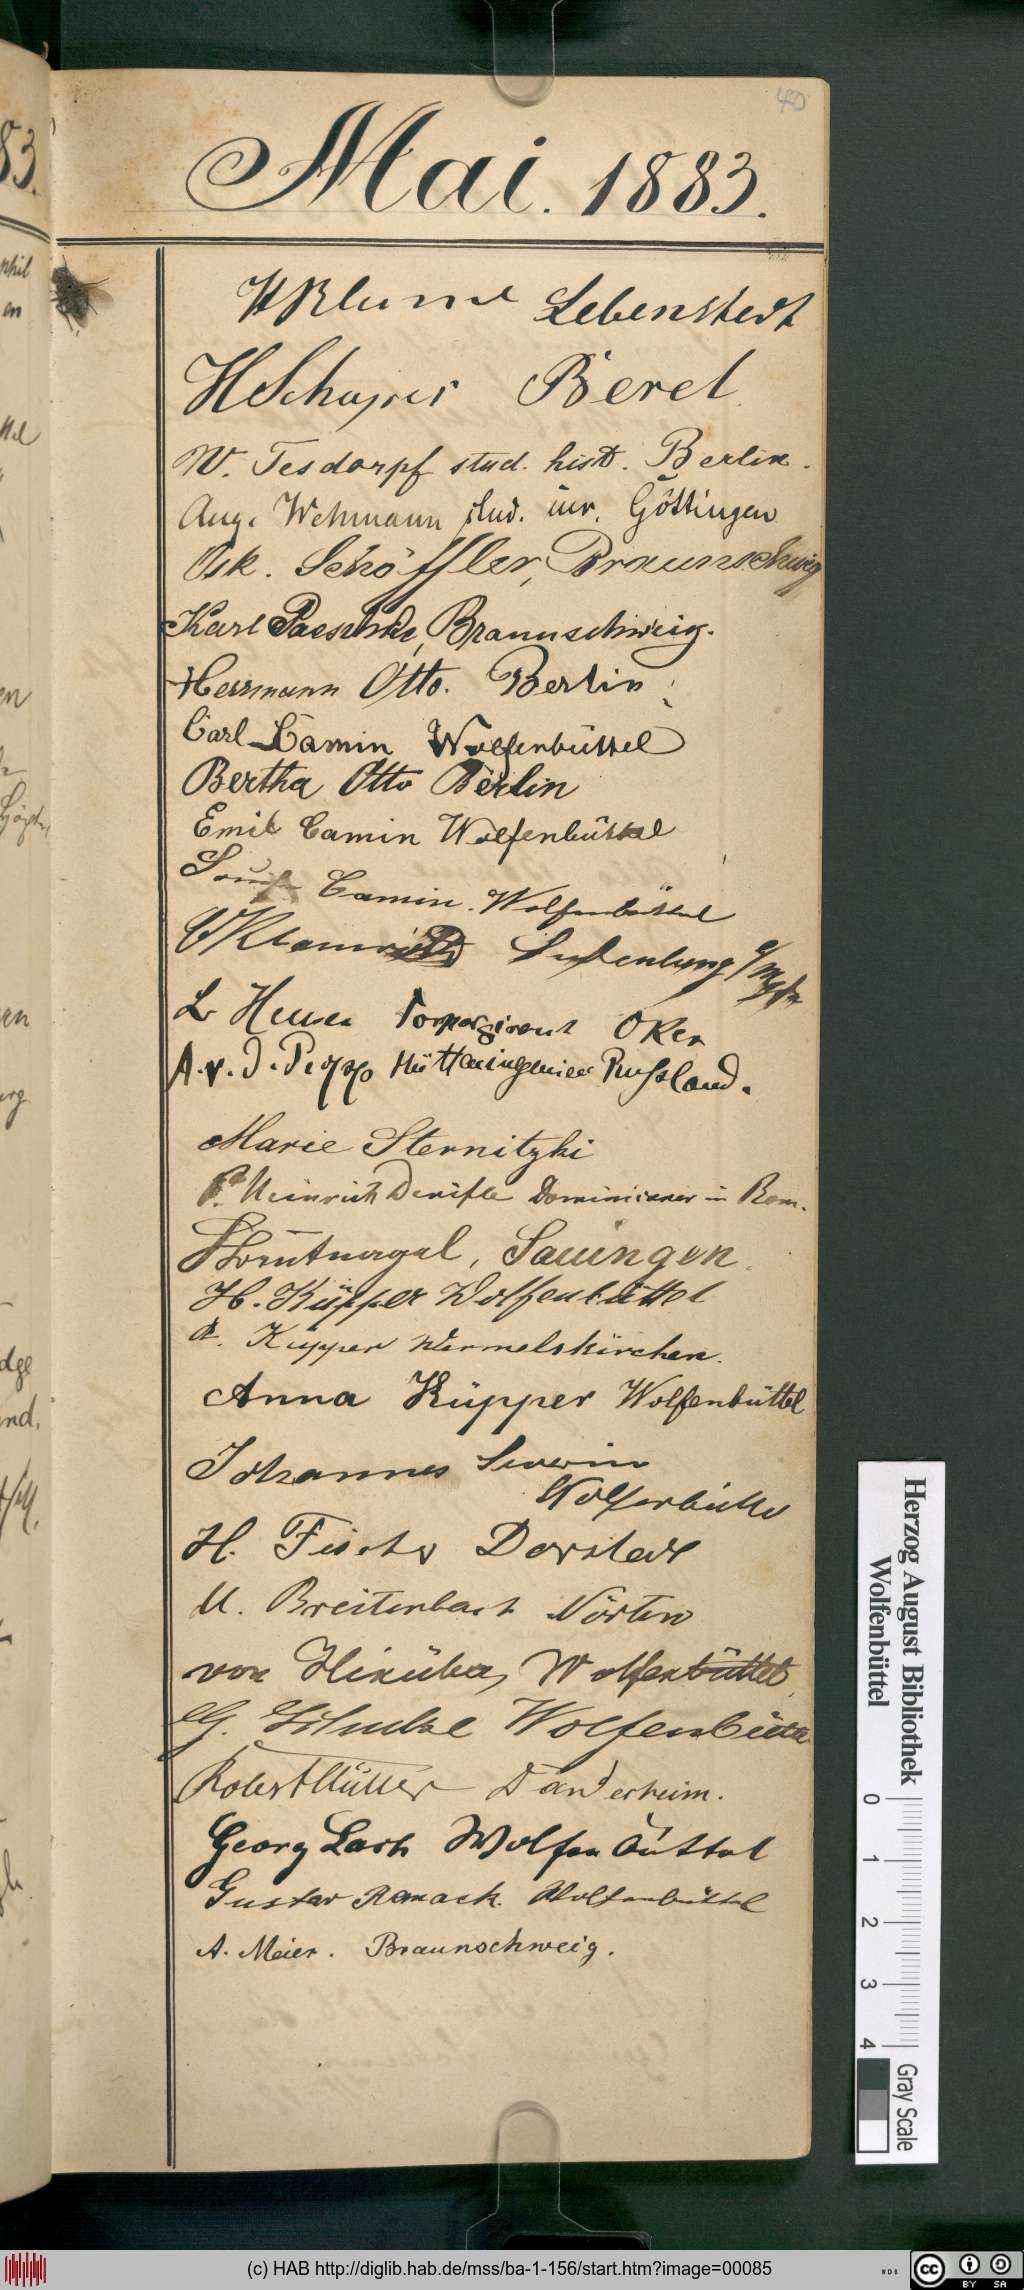 40
Mai. 1883.
H Blume Lebenstedt
H Schaper Berel
W. Tesdorpf stud. hist. Berlin.
Aug. Wehmann stud. iur. Göttingen
Osk. Schöffler, Braunschweig
Karl Paeschke, Braunschweig.
Herrmann Otto. Berlin
Carl Camin Wolfenbüttel
Bertha Otto Berlin
Emil Camin Wolfenbüttel
Louise Camin. Wolfenbüttel
Sudenburg
L Heuer Oker
A. v. d. Hütteningenieur Russland.
Marie Sternitzki
P. Heinrich Denifle Dominicaner in Rom.
Sauingen
H. Küpper Wolfenbüttel
A. Küpper Wermelskirchen.
Anna Küpper Wolfenbüttel
Johannes Severin
Wolfenbüttel
H. Fischer Dorstadt
M. Breitenbach Nörten
von Hinüber, Wolfenbüttel
G. Schulze Wolfenbüttel
Robert Müller Dandersheim.
Georg Lach Wolfenbüttel
Gustav Ramack. Wolfenbüttel
A. Meier. Braunschweig.
Herzog August Bibliothek
Wolfenbüttel
0 1 2 3 4
Gray Scale
(c) HAB http://diglib.hab.de/mss/ba-1-156/start.htm?image=00085
WDB
cc BY SA